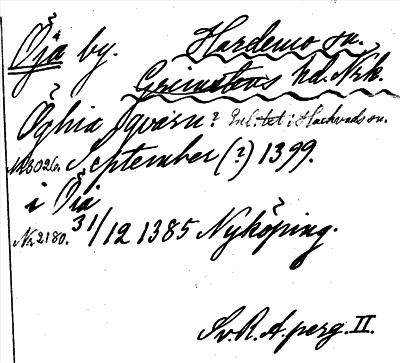 Öjä by. Hardemo sn.
Grimstens hd. Nrk.
Öghia qværn? Enl. tet i Hackvads sn.
Nr 3026. September (?) 1399.
i Öia
Nr 2180. 31/12 1385 Nyköping.
Sv. R. A. perg. II.